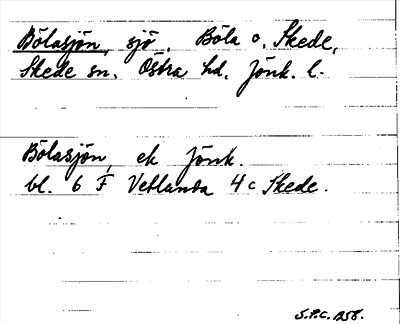 Bölasjön, sjö. Böla o. Skede,
Skede sn. Östra hd. Jönk. l.
Bölasjön, ek Jönk.
bl. 6 F Vetlanda 4 c Skede.
S.P.C. 1958.